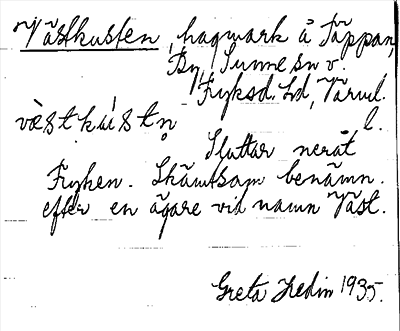 Västkusten, hagmark å Täppan,
By, Sunne sn v.
Fryksd. hd, Värml.
væ̀stkús̀tn̥ l.
Sluttar neråt
Fryken. Skämtsam benämn.
efter en ägare vid namn Väst.
Greta Hedin 1935.